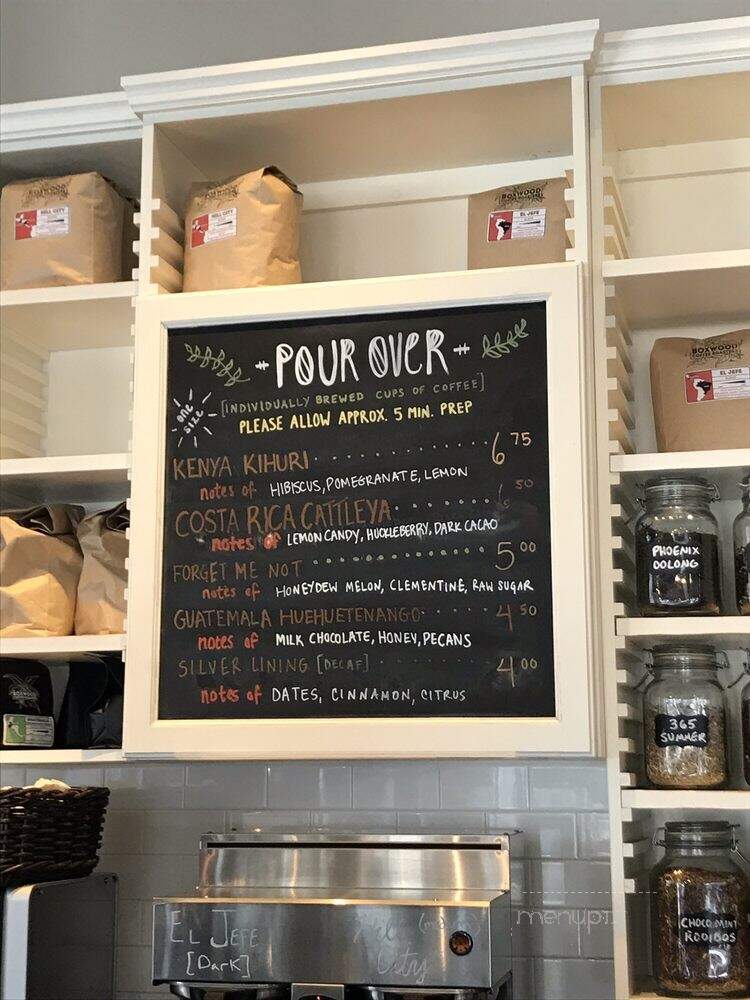 BOXWOOD
HILL CITY
BOXWOOD
HILL CITY
BOXWOOD
EL JEFE
BOXWOOD
COFFEE ROASTERS
EL JEFE
POUR OVER
ONE SIZE
[INDIVIDUALLY BREWED CUPS OF COFFEE]
PLEASE ALLOW APPROX. 5 MIN. PREP
KENYA KIHURI 6 75
notes of HIBISCUS, POMEGRANATE, LEMON
COSTA RICA CATTLEYA 6 50
notes of LEMON CANDY, HUCKLEBERRY, DARK CACAO
FORGET ME NOT 5 00
notes of HONEYDEW MELON, CLEMENTINE, RAW SUGAR
GUATEMALA HUEHUETENANGO 4 50
notes of MILK CHOCOLATE, HONEY, PECANS
SILVER LINING [DECAF] 4 00
notes of DATES, CINNAMON, CITRUS
PHOENIX
OOLONG
365
SUMMER
CHOCO MINT
ROOIBOS
EL JEFE
[Dark]
City
menupix